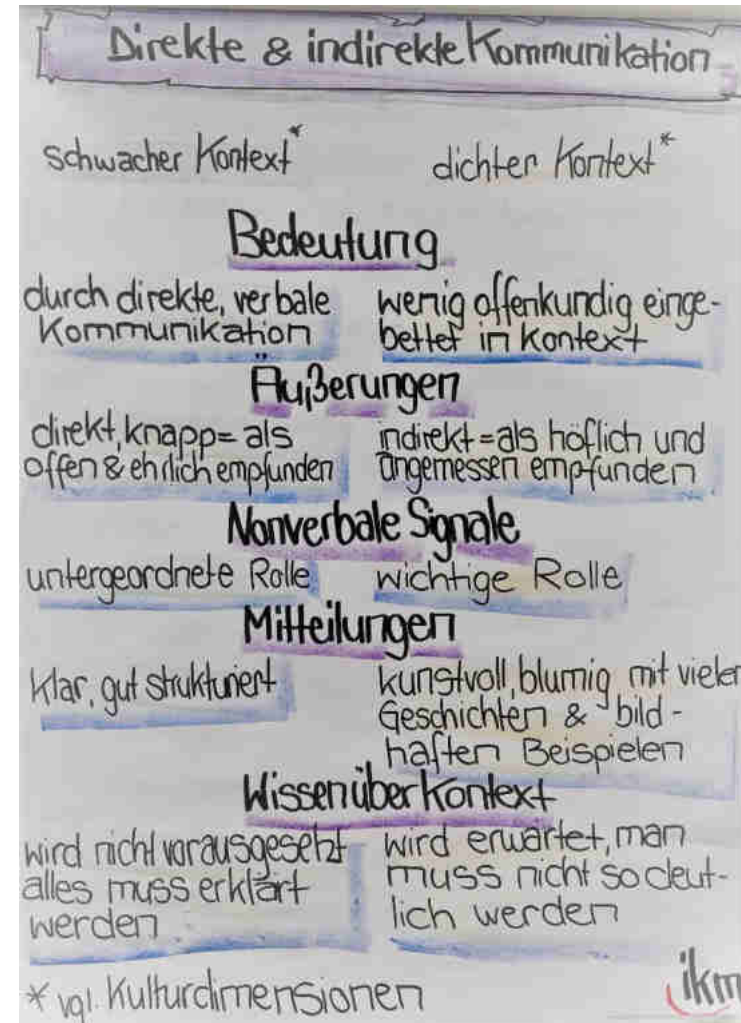 Direkte & indirekte Kommunikation
schwacher Kontext*
dichter Kontext*
Bedeutung
durch direkte, verbale
Kommunikation
wenig offenkundig einge-
bettet in Kontext
Äußerungen
direkt, knapp = als
offen & ehrlich empfunden
indirekt = als höflich und
angemessen empfunden
Nonverbale Signale
untergeordnete Rolle
wichtige Rolle
Mitteilungen
klar, gut strukturiert
kunstvoll, blumig mit vielen
Geschichten & bild-
haften Beispielen
Wissen über Kontext
wird nicht vorausgesetzt
alles muss erklärt
werden
wird erwartet, man
muss nicht so deut-
lich werden
* vgl. Kulturdimensionen
ikm